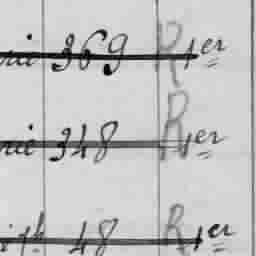 rie 369 R 1er
rie 348 R 1er
48 R 1er